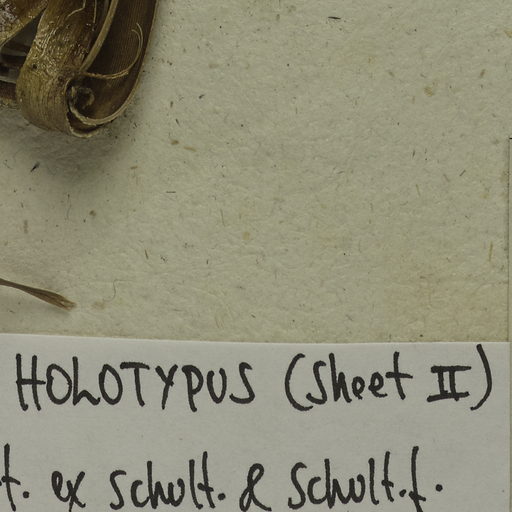 HOLOTYPUS (Sheet II)
t. ex Schult. & Schult.f.